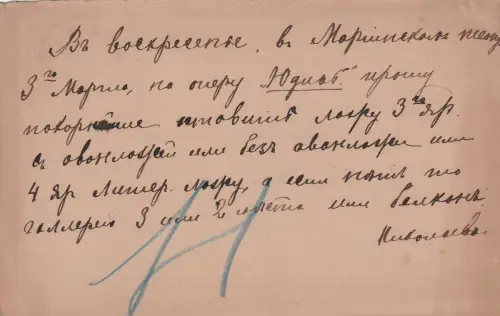 Въ воскресенье, въ Марiинскомъ театр
3го Марта, на оперу "Юдиѳь" прошу
покорнѣйше оставить ложу 3го яр.
съ аванложей или безъ аванложи или
4 яр. Литер. ложу, а если нѣтъ то
галлерею 3 или 2 мѣста или балконъ.
Николаева.